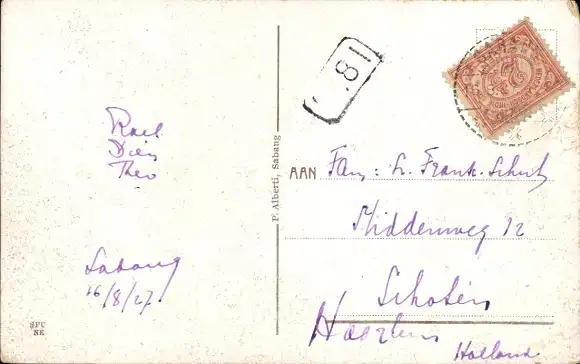 .81
Roel
Dien
Theo
Sabang
16/8/27.
P. Alberti, Sabang
AAN Fam: L. Frank-Schut
Middenweg 12
Schoten
Haarlem
Holland
SFU
NE